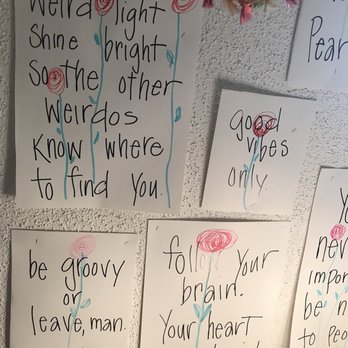 Weird light
Shine bright
So the other
weirdos
Know where
to find you.
good
vibes
only.
Pear
be groovy
or
leave, man.
follow your
brain.
Your heart
Yo
nev
impor
be n
to peo